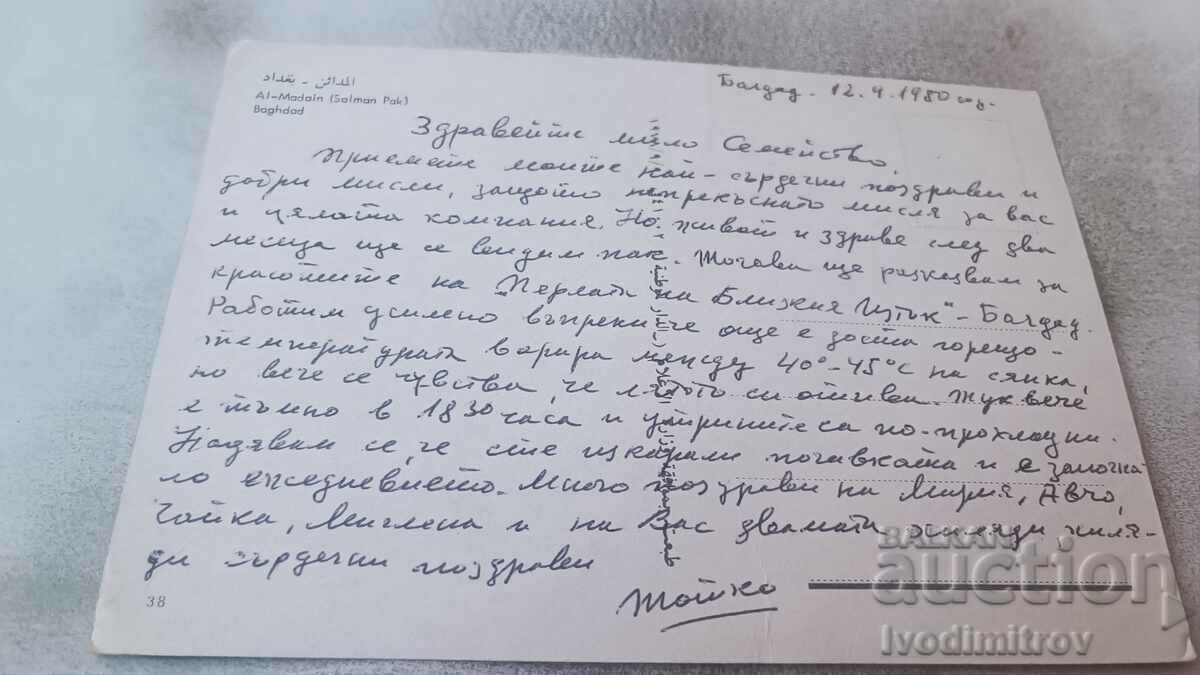 المدائن - بغداد
Al-Madain (Salman Pak)
Baghdad
Багдад. 12.9.1980 год.
Здравейте мило Семейство,
Приемете моите най-сърдечни поздрави и
добри мисли, защото непрекъснато мисля за вас
и цялата компания. Но, живот и здраве след два
месеца ще се видим пак. Тогава ще разказвам за
красотите на "Перлата на Близкия Изток" - Багдад.
Работим усилено въпреки че още е доста горещо -
температурата варира между 40° - 45°C на сянка,
но вече се чувства, че лятото си отива. Тук вече
е тъмно в 18 30 часа и утрините са по-прохладни.
Надявам се, че сте изкарали почивката и е започна-
ло ежедневието. Много поздрави на Мария, Авчо,
Чайка, Миглена и на Вас двамата хиля-
ди сърдечни поздрави
Тошко
38
БАЛКАН
auction
Ivodimitrov